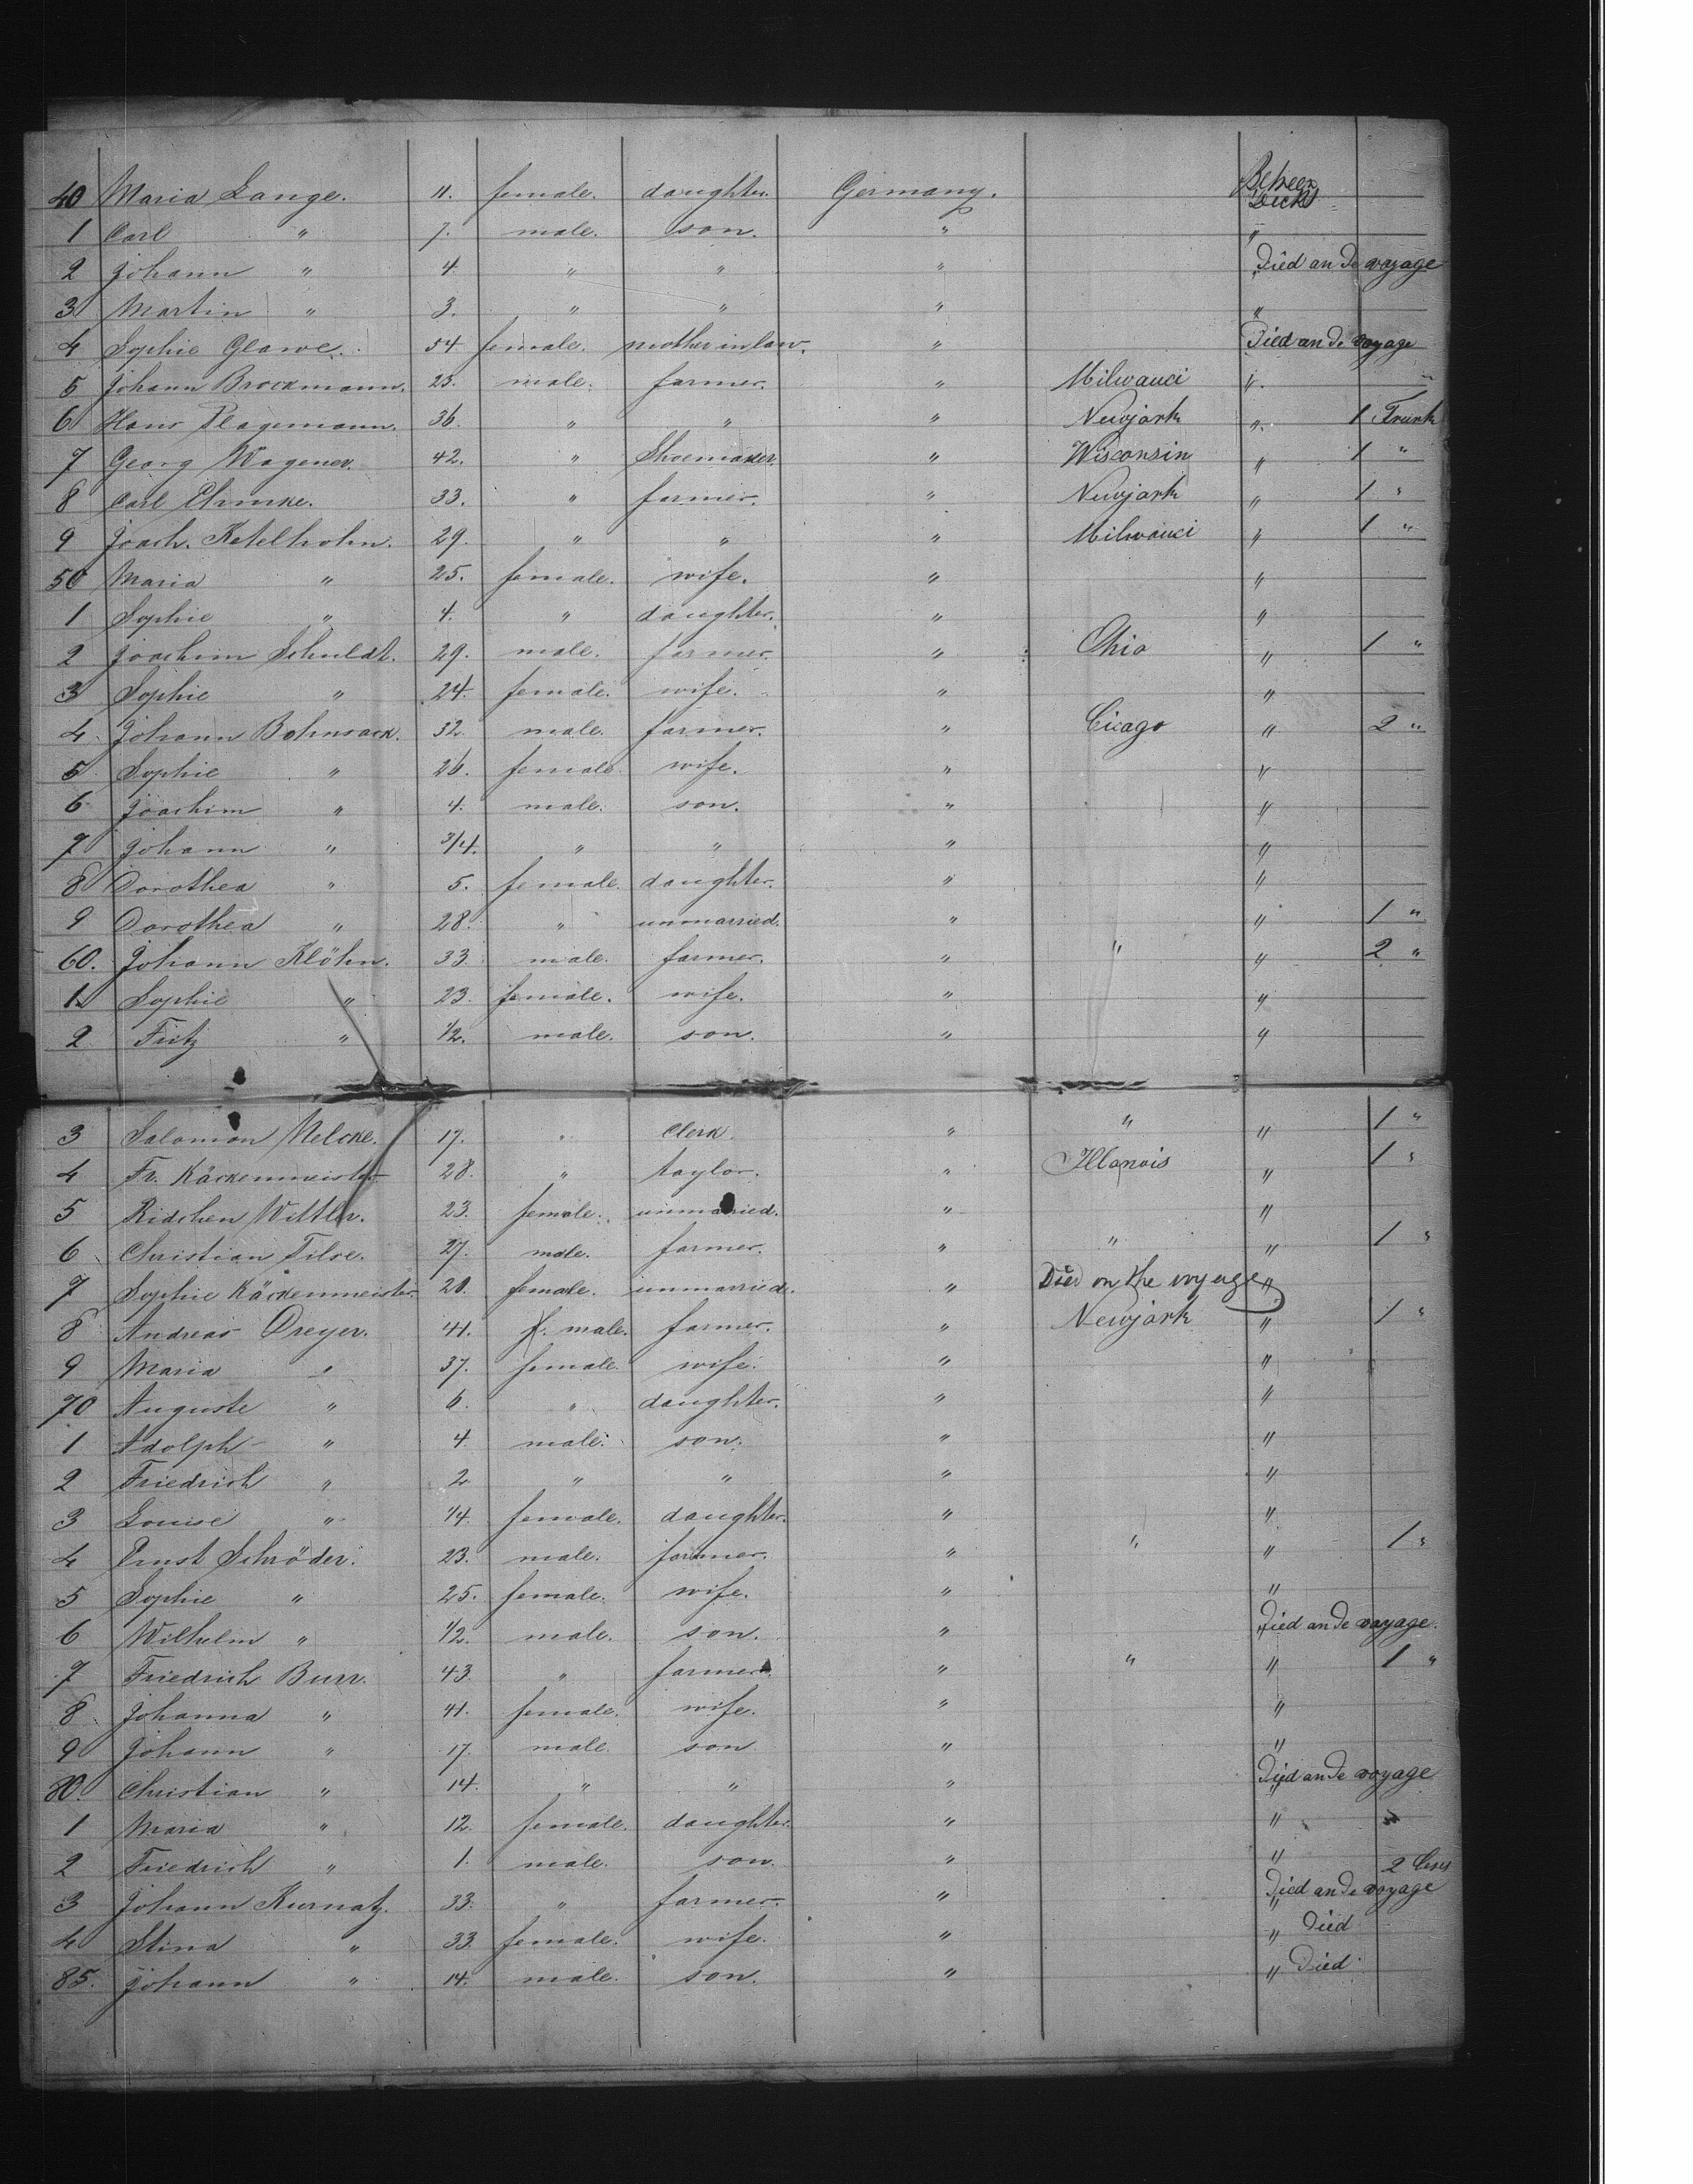 40 Maria Lange. 11. female. daughter. Germany. Between Deck
1 Carl " 7. male. son. " "
2 Johann " 4. " " " Died an de voyage
3 Martin " 3. " " " "
4 Sophie Glawe. 54 female. mother in law. " Died an de voyage
5 Johann Brockmann. 23. male. farmer. " Milwauci "
6 Hans Plagemann. 36. " " " Newjork " 1 Trunk
7 Georg Wagener. 42. " Shoemaker. " Wisconsin " 1 "
8 Carl 33. " farmer. " Newjork " 1 "
9 Joach. Ketelhohn. 29. " " " Milwauci " 1 "
50 Maria " 25. female. wife. " "
1 Sophie " 4. " daughter. " "
2 Joachim Schuldt. 29. male. farmer. " Ohio " 1 "
3 Sophie " 24. female. wife. " "
4 Johann Bohnsack. 32. male. farmer. " Cicago " 2 "
5 Sophie " 26. female. wife. " "
6 Joachim " 4. male. son. " "
7 Johann " 3/4. " " " "
8 Dorothea " 5. female. daughter. " "
9 Dorothea " 28. " unmarried. " " 1 "
60. Johann Klöhn. 33. male. farmer. " " " 2 "
1. Sophie " 23. female. wife. " "
2 Fritz " 1/2. male. son. " "
3 Salomon Melcke. 17. " Clerk. " " " 1 "
4 Fr. Käckenmeister 28. " taylor. " Illonois " 1 "
5 Ridchen 23. female. unmarried. " "
6 Christian Tilse. 27. male. farmer. " " " 1 "
7 Sophie Käckenmeister. female. unmarried. " Died on the voyage "
8 Andreas Dreyer. 41. male. farmer. " Newjork " 1 "
9 Maria " 37. female. wife. " "
70 Auguste " 6. " daughter. " "
1 Adolph " 4 male. son. " "
2 Friedrich " 2 " " " "
3 Louise " 1/4. female. daughter. " "
4 Ernst Schröder. 23. male. farmer. " " " 1 "
5 Sophie " 25. female. wife. " "
6 Wilhelm " 1/2. male. son. " Died an de voyage.
7 Friedrich Burr. 43. " farmer. " " " 1 "
8 Johanna " 41. female. wife. " "
9 Johann " 17. male. son " "
80. Christian " 14. " " " Died an de voyage
1 Maria " 12. female. daughter. " "
2 Friedrich " 1. male. son. " " 2
3 Johann Kurnatz. 33. " farmer. " Died an de voyage
4 Stina " 33 female. wife. " " Died
85. Johann " 14. male. son. " " Died